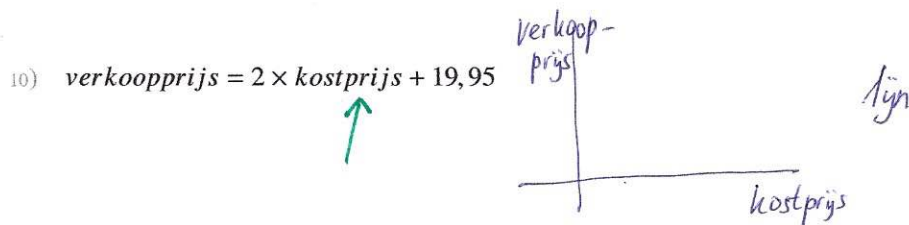 10) verkoopprijs = 2 × kostprijs + 19,95
verkoop-
prijs
lijn
kostprijs